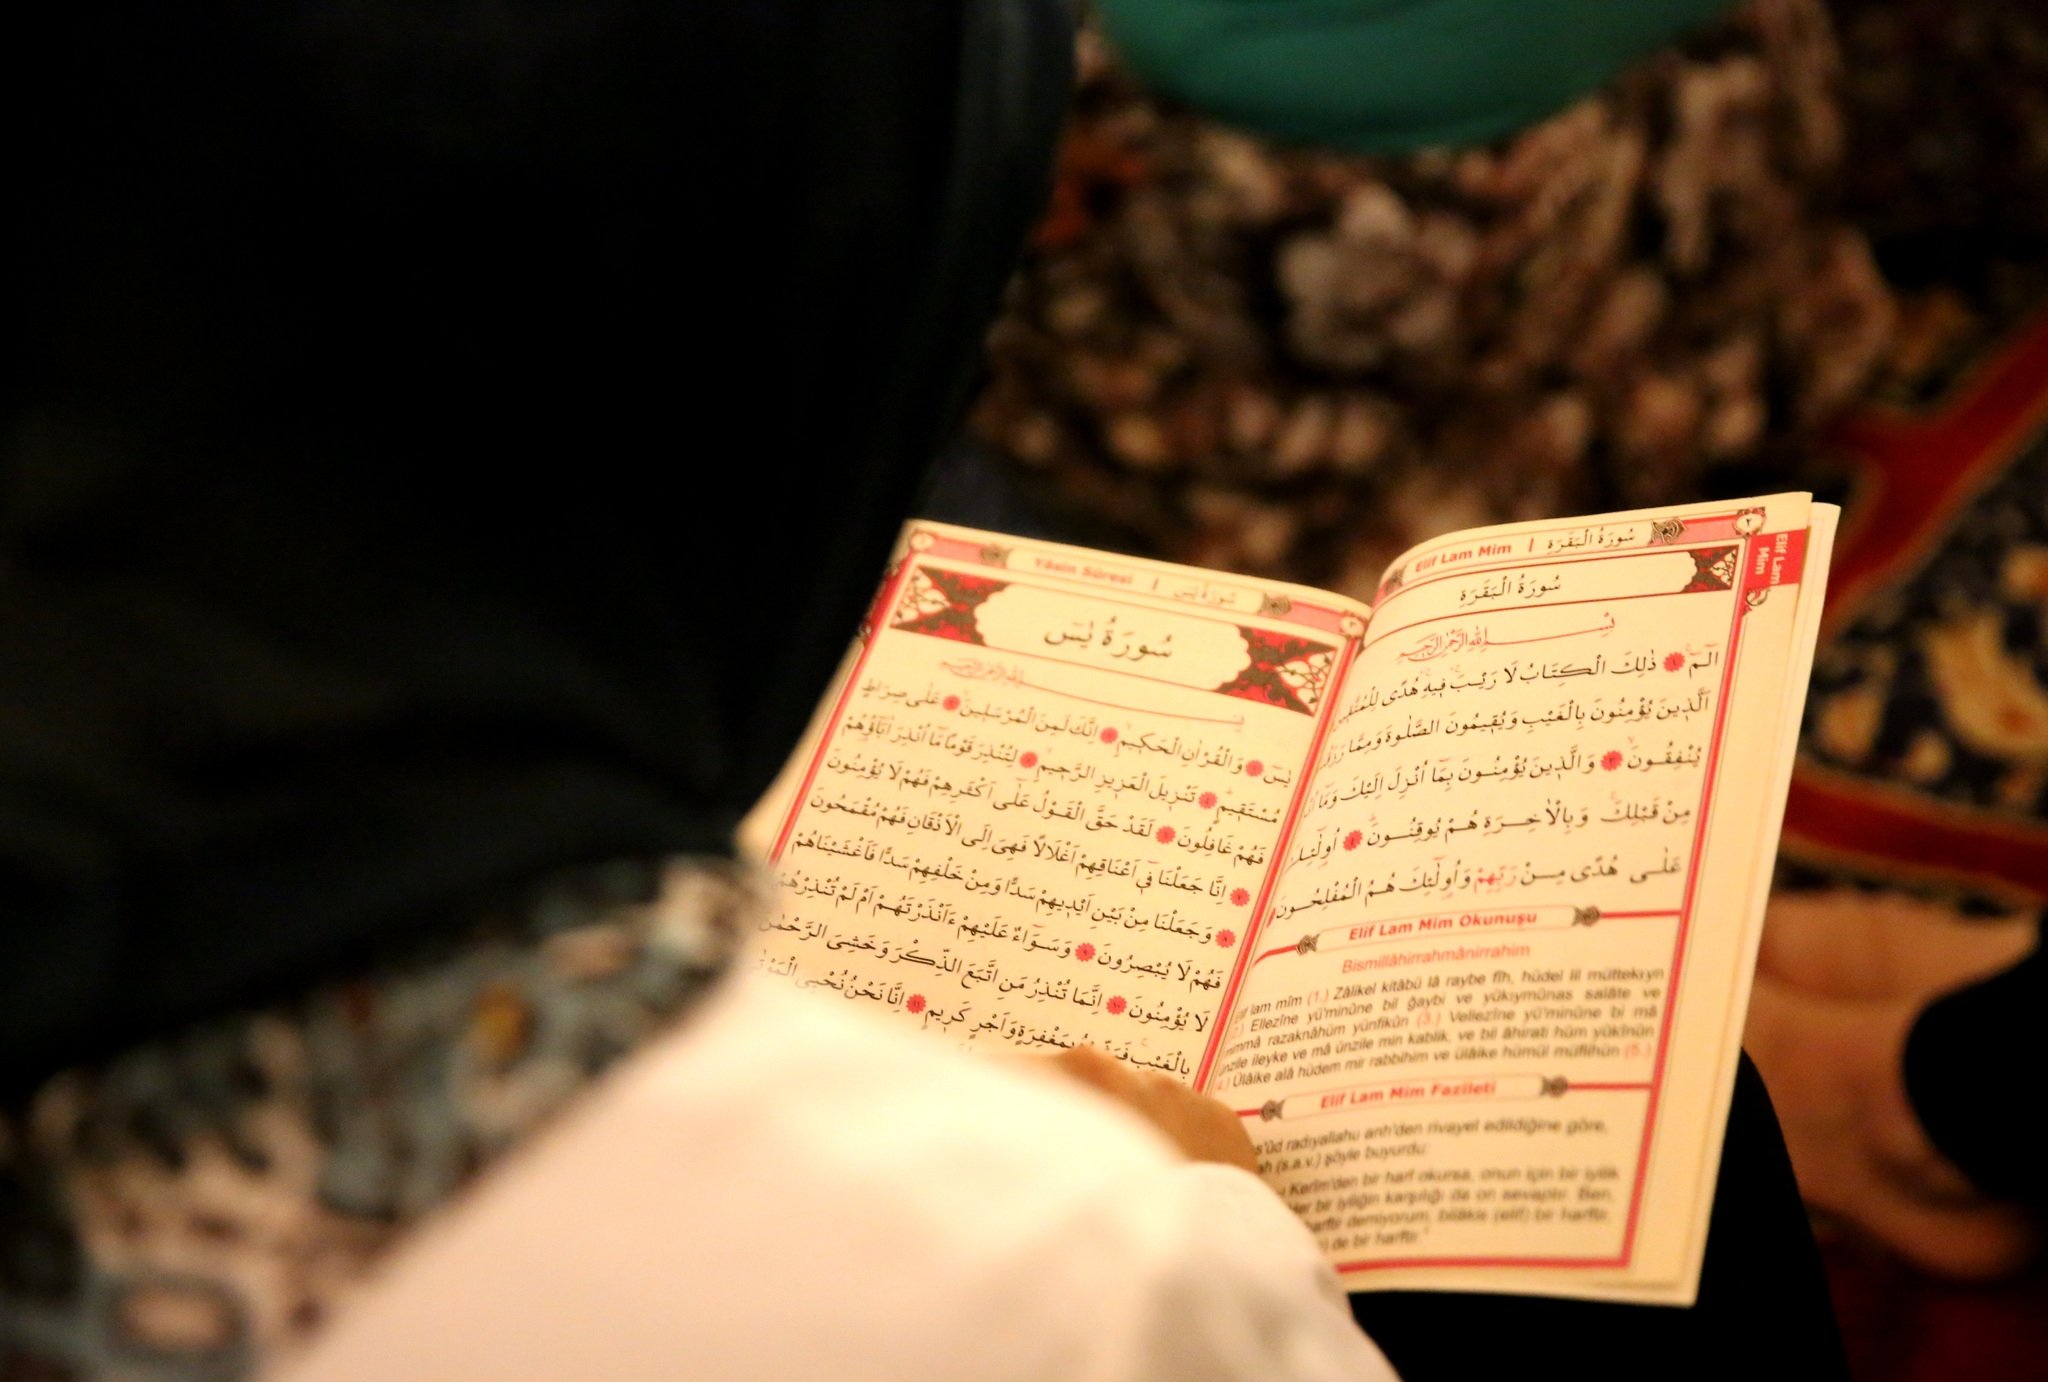 Elif Lam Mim | سُورَةُ الْبَقَرَةِ
٢
Elif Lam
Mim
سُورَةُ الْبَقَرَةِ
بِسْمِ اللهِ الرَّحْمٰنِ الرَّحِيمِ
الٓمٓ ۚ ﴿١﴾ ذٰلِكَ الْكِتَابُ لَا رَيْبَ ۚ فِيهِ ۚ هُدًى لِلْمُتَّقِينَ
اَلَّذِينَ يُؤْمِنُونَ بِالْغَيْبِ وَيُقِيمُونَ الصَّلٰوةَ وَمِمَّا
يُنْفِقُونَ ۙ ﴿٣﴾ وَالَّذِينَ يُؤْمِنُونَ بِمَٓا اُنْزِلَ اِلَيْكَ وَمَٓا
مِنْ قَبْلِكَ ۚ وَبِالْاٰخِرَةِ هُمْ يُوقِنُونَ ۜ ﴿٤﴾ اُولٰٓئِكَ
عَلٰى هُدًى مِنْ رَبِّهِمْ وَاُولٰٓئِكَ هُمُ الْمُفْلِحُونَ
Elif Lam Mim Okunuşu
Bismillâhirrahmânirrahim
lam mîm (1.) Zâlikel kitâbü lâ raybe fîh, hüdel lil müttekıyn
Ellezîne yü'minûne bil ğaybi ve yükıymûnas salâte ve
mimmâ razaknâhüm yünfikûn (3.) Vellezîne yü'minûne bi mâ
ünzile ileyke ve mâ ünzile min kablik, ve bil âhirati hüm yûkinûn
4.) Ülâike alâ hüdem mir rabbihim ve ülâike hümül müflihûn (5.)
Elif Lam Mim Fazileti
radıyallahu anh'den rivayet edildiğine göre,
(s.a.v.) şöyle buyurdu:
Kerîm'den bir harf okursa, onun için bir iyilik
Her bir iyiliğin karşılığı da on sevaptır. Ben,
harftir demiyorum, bilâkis (elif) bir harftir,
de bir harftir."
Yâsin Sûresi | سُورَةُ يٰسٓ
سُورَةُ يٰسٓ
بِسْمِ اللهِ الرَّحْمٰنِ الرَّحِيمِ
يٰسٓ ﴿١﴾ وَالْقُرْاٰنِ الْحَكِيمِ ۙ ﴿٢﴾ اِنَّكَ لَمِنَ الْمُرْسَلِينَ ۙ ﴿٣﴾ عَلٰى صِرَاطٍ
مُسْتَقِيمٍ ۜ ﴿٤﴾ تَنْزِيلَ الْعَزِيزِ الرَّحِيمِ ۙ ﴿٥﴾ لِتُنْذِرَ قَوْمًا مَٓا اُنْذِرَ اٰبَٓاؤُهُمْ
فَهُمْ غَافِلُونَ ﴿٦﴾ لَقَدْ حَقَّ الْقَوْلُ عَلٰٓى اَكْثَرِهِمْ فَهُمْ لَا يُؤْمِنُونَ
﴿٧﴾ اِنَّا جَعَلْنَا فِٓي اَعْنَاقِهِمْ اَغْلَالًا فَهِيَ اِلَى الْاَذْقَانِ فَهُمْ مُقْمَحُونَ
﴿٨﴾ وَجَعَلْنَا مِنْ بَيْنِ اَيْدِيهِمْ سَدًّا وَمِنْ خَلْفِهِمْ سَدًّا فَاَغْشَيْنَاهُمْ
فَهُمْ لَا يُبْصِرُونَ ﴿٩﴾ وَسَوَٓاءٌ عَلَيْهِمْ ءَاَنْذَرْتَهُمْ اَمْ لَمْ تُنْذِرْهُمْ
لَا يُؤْمِنُونَ ﴿١٠﴾ اِنَّمَا تُنْذِرُ مَنِ اتَّبَعَ الذِّكْرَ وَخَشِيَ الرَّحْمٰنَ
بِالْغَيْبِ ۚ بِمَغْفِرَةٍ وَاَجْرٍ كَرِيمٍ ﴿١١﴾ اِنَّا نَحْنُ نُحْيِي الْمَوْتٰى